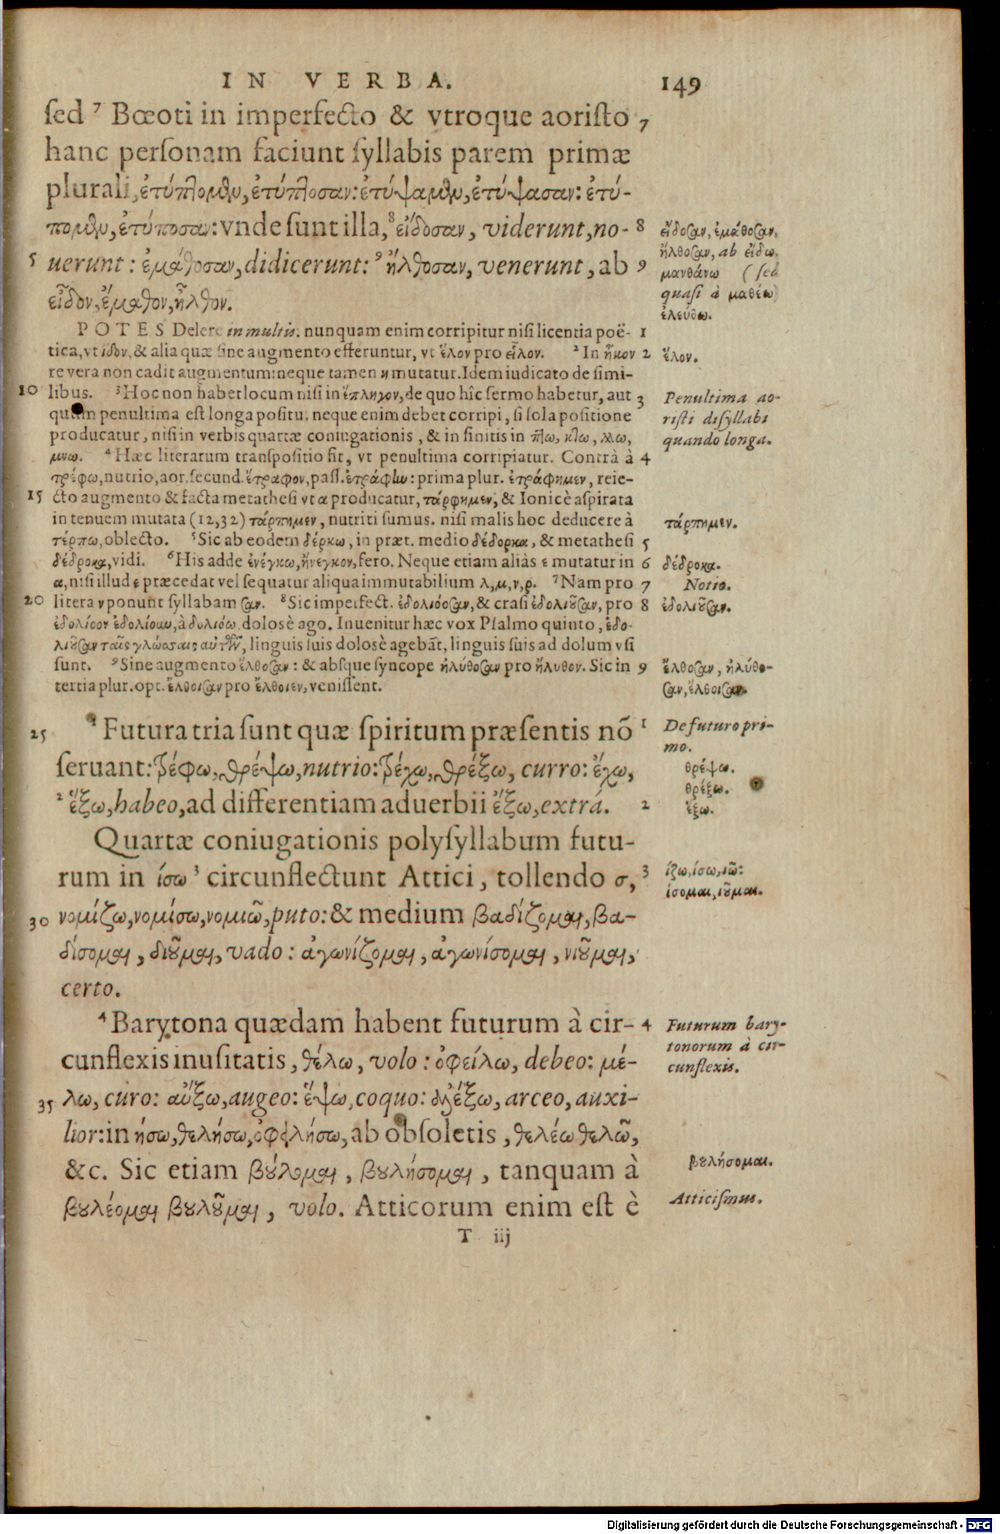 IN VERBA. 149
sed ⁷ Bœoti in imperfecto & vtroque aoristo 7
hanc personam faciunt syllabis parem primæ
plurali, ἐτύπτομϑυ, ἐτύπτοσαν: ἐτύψαμϑυ, ἐτύψασαν: ἐτύ-
πομϑυ, ἐτύποσαν: vnde sunt illa, ⁸ εἴδοσαν, viderunt, no- 8
5 uerunt: ἐμάθοσαν, didicerunt: ⁹ ἤλθοσαν, venerunt, ab 9
εἶδον, ἔμαθον, ἦλθον.
εἴδοσαν, ἐμάθοσαν,
ἤλθοσαν, ab εἴδω,
μανθάνω (seu
quasi à μαθέω)
ἐλεύθω.
POTES Delere in multis. nunquam enim corripitur nisi licentia poë- 1
tica, vt ἴδον, & alia quæ sine augmento efferuntur, vt ἕλον pro εἷλον. ² In ἧκον 2 ἕλον.
re vera non cadit augmentum: neque tamen η mutatur. Idem iudicato de simi-
10 libus. ³ Hoc non haber locum nisi in ἔπληγον, de quo hîc sermo habetur, aut 3
quum penultima est longa positu. neque enim debet corripi, si sola positione
producatur, nisi in verbis quartæ coniugationis, & in finitis in πτω, κτω, λλω,
μνω. ⁴ Hæc literarum transpositio fit, vt penultima corripiatur. Contrà à 4
Penultima ao-
risti disyllabi
quando longa.
τρέφω, nutrio, aor. secund. ἔτραφον, pass. ἐτράφην: prima plur. ἐτράφημεν, reie-
15 cto augmento & facta metathesi vt α producatur, τάρφημεν, & Ionicè aspirata
in tenuem mutata (12,32) τάρπημεν, nutriti sumus. nisi malis hoc deducere à τάρπημεν.
τέρπω, oblecto. ⁵ Sic ab eodem δέρκω, in præt. medio δέδορκα, & metathesi 5
δέδροκα, vidi. ⁶ His adde ἐνέγκω, ἤνεγκον, fero. Neque etiam aliàs ε mutatur in 6 δέδροκα.
α, nisi illud ε præcedat vel sequatur aliqua immutabilium λ, μ, ν, ρ. ⁷ Nam pro 7 Notio.
20 litera ν ponunt syllabam σαν. ⁸ Sic imperfect. ἐδολιόοσαν, & crasi ἐδολιοῦσαν, pro 8 ἐδολιοῦσαν.
ἐδολίοον ἐδολίουν, à δολιόω dolosè ago. Inuenitur hæc vox Psalmo quinto, ἐδο-
λιοῦσαν ταῖς γλώσσαις αὐτῶν, linguis suis dolosè agebāt, linguis suis ad dolum vsi
sunt. ⁹ Sine augmento ἔλθοσαν: & absque syncope ἠλύθοσαν pro ἤλυθον. Sic in 9
tertia plur. opt. ἔλθοισαν pro ἔλθοιεν, venissent.
ἔλθοσαν, ἠλύθο-
σαν, ἔλθοισαν.
25 ¹ Futura tria sunt quæ spiritum præsentis nō 1
seruant: τρέφω, θρέψω, nutrio: τρέχω, θρέξω, curro: ἔχω,
² ἕξω, habeo, ad differentiam aduerbii ἔξω, extrá. 2
De futuro pri-
mo.
θρέψω.
θρέξω.
ἕξω.
Quartæ coniugationis polysyllabum futu-
rum in ίσω ³ circunflectunt Attici, tollendo σ, 3
30 νομίζω, νομίσω, νομιῶ, puto: & medium βαδίζομαι, βα-
δίσομαι, διοῦμαι, vado: ἀγωνίζομαι, ἀγωνίσομαι, νιοῦμαι,
certo.
ίζω, ίσω, ιῶ:
ίσομαι, ιοῦμαι.
⁴ Barytona quædam habent futurum à cir- 4
cunflexis inusitatis, θέλω, volo: ὀφείλω, debeo: μέ-
35 λω, curo: αὔξω, augeo: ἕψω, coquo: ἀλέξω, arceo, auxi-
lior: in ήσω, θελήσω, ὀφειλήσω, ab obsoletis, θελέω θελῶ,
&c. Sic etiam βούλομαι, βουλήσομαι, tanquam à
βουλέομαι βουλοῦμαι, volo. Atticorum enim est è
Futurum bary-
tonorum à cir-
cunflexis.
βουλήσομαι.
Atticismus.
T iij
Digitalisierung gefördert durch die Deutsche Forschungsgemeinschaft - DFG